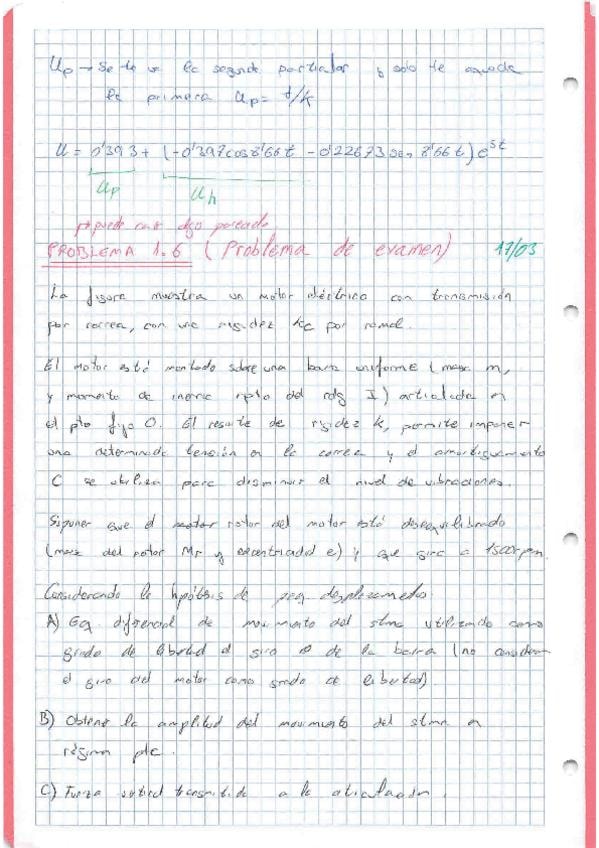 Up → Se te va la segunda particular y solo te queda
la primera Up = 1/k
U = 0'393 + (-0'397cos8'66t - 0'22673sen 8'66t) e^5t
Up
Uh
→ puede caer algo parecido
PROBLEMA 1.6 (Problema de examen) 17/03
La figura muestra un motor eléctrico con transmisión
por correa, con una rigidez Kc por ramal.
El motor está montado sobre una barra uniforme (masa m,
y momento de inercia rpto del cdg I) articulada en
el pto fijo O. El resorte de rigidez k, permite imponer
una determinada tensión en la correa y el amortiguamiento
C se utiliza para disminuir el nivel de vibraciones.
Suponer que el rotor del motor está desequilibrado
(masa del rotor Mr y excentricidad e) y que gira a 1500rpm.
Considerando la hipótesis de peq. desplazamientos.
A) Eq. diferencial de movimiento del stma utilizando como
grado de libertad el giro θ de la barra (no considerar
el giro del motor como grado de libertad).
B) Obtener la amplitud del movimiento del stma en
régimen pte.
C) Fuerza vertical transmitida a la articulación.